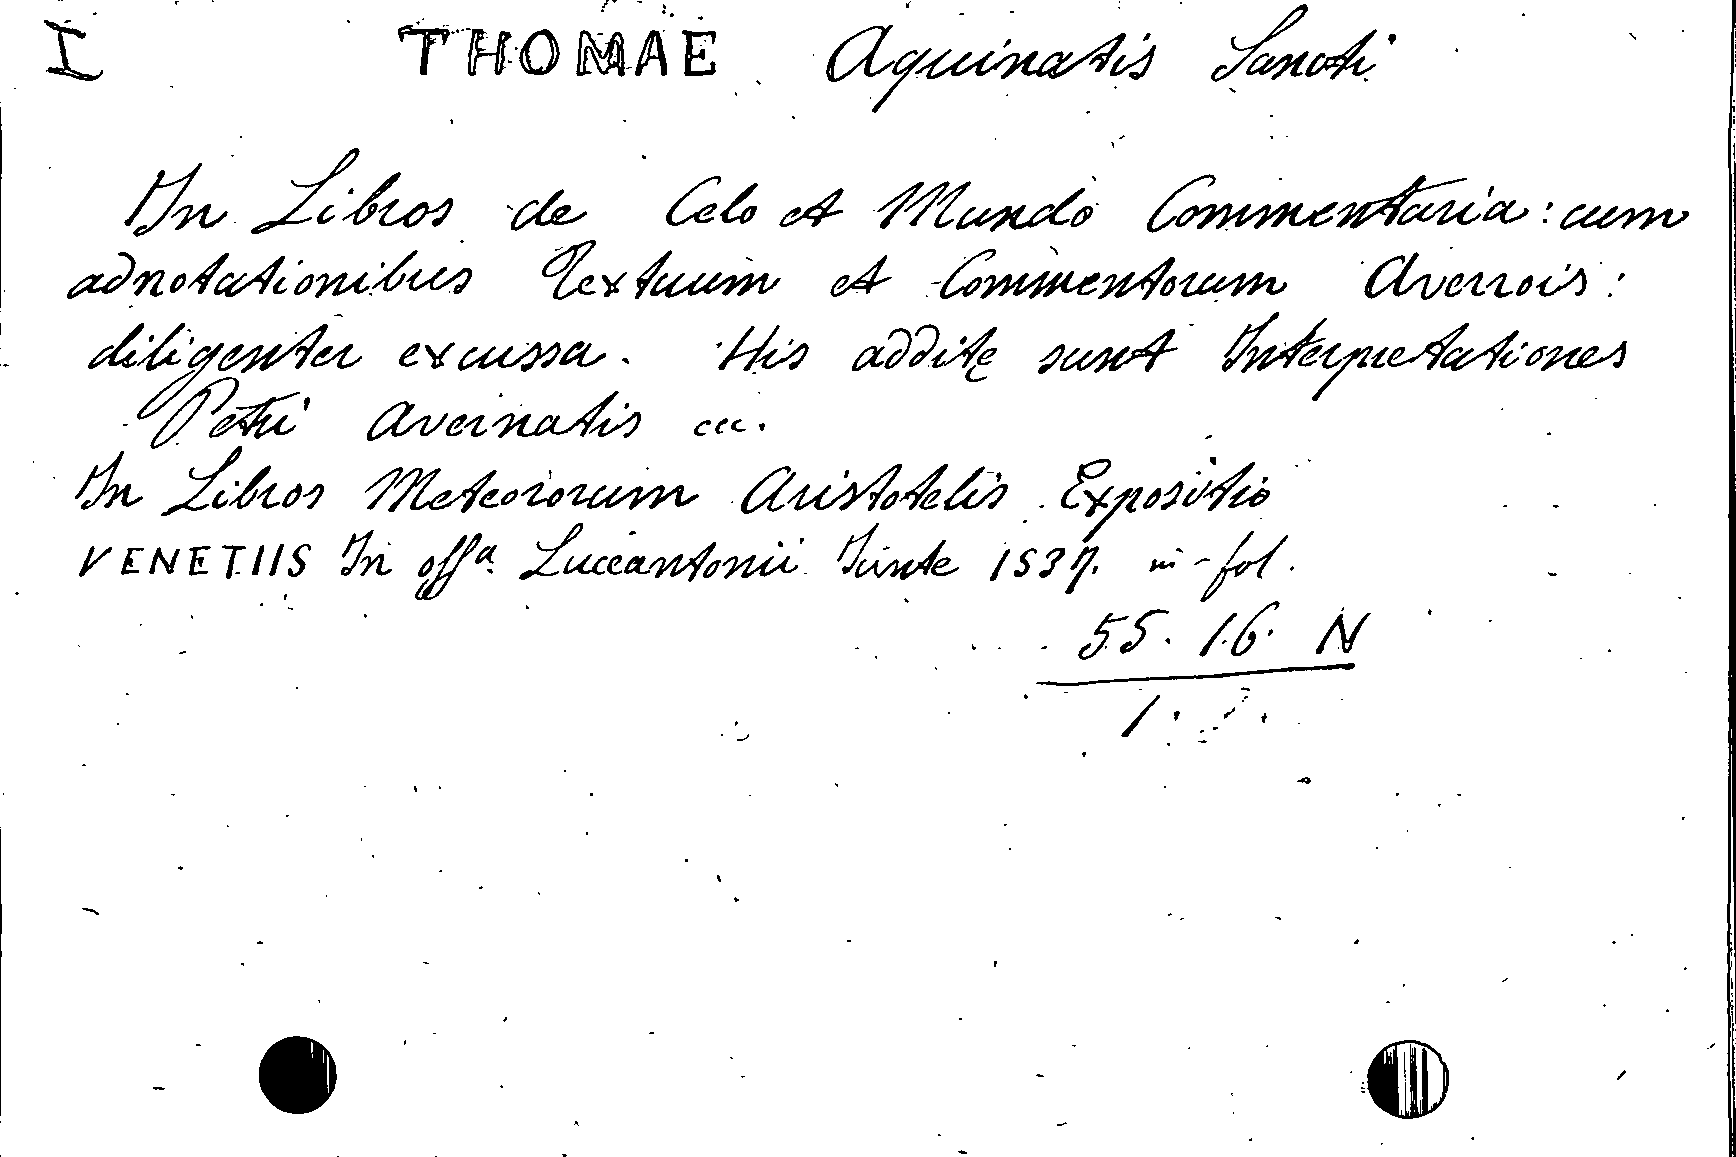 I THOMAE Aquinatis Sancti
In Libros de Celo et Mundo Commentaria: cum
adnotationibus Textuum et Commentorum Averrois:
diligenter excussa. His additę sunt Interpretationes
Petri Avernatis ecc.
In Libros Meteororum Aristotelis Expositio
VENETIIS In offª Luceantonii Iunte 1537. in-fol.
55. 16. N
1.